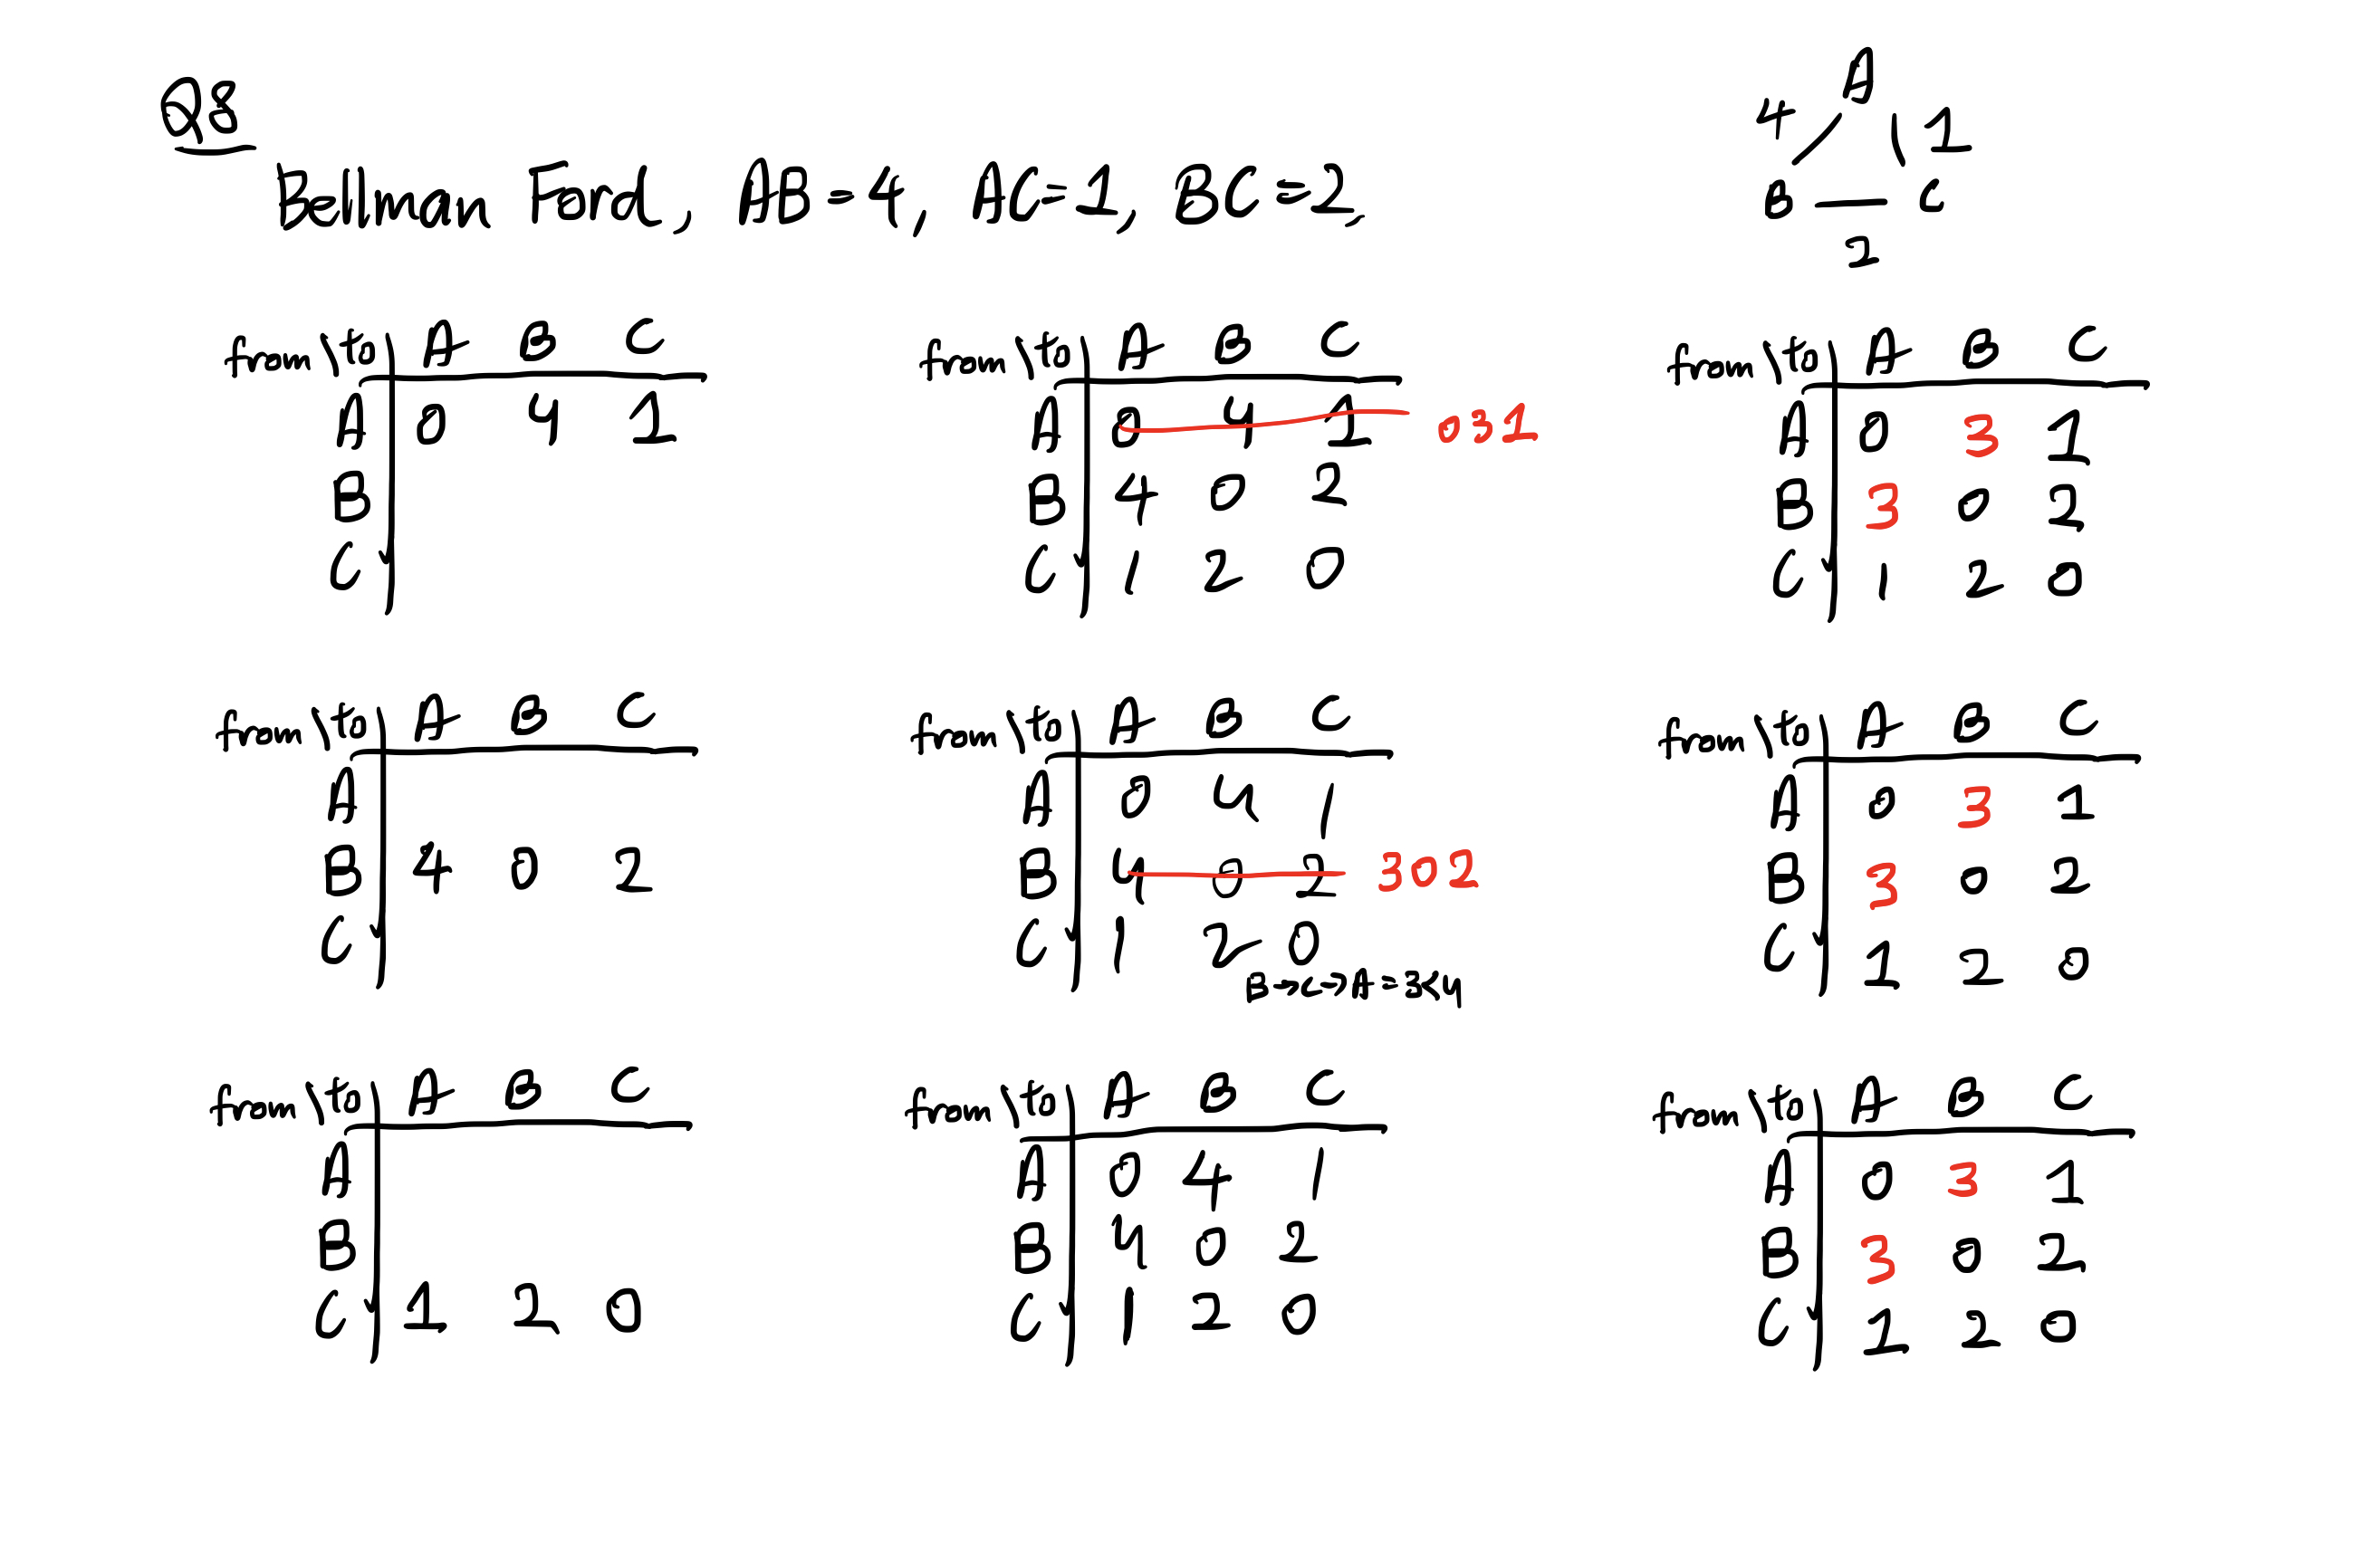 Q8
Bellman Ford, AB=4, AC=1, BC=2,
A
4 1
B C
2
from\to A B C
A 0 4 1
B
C
from\to A B C
A 0 4 1 0 3 1
B 4 0 2
C 1 2 0
from\to A B C
A 0 3 1
B 3 0 2
C 1 2 0
from\to A B C
A
B 4 0 2
C
from\to A B C
A 0 4 1
B 4 0 2 3 0 2
C 1 2 0
B->C->A=3<4
from\to A B C
A 0 3 1
B 3 0 2
C 1 2 0
from\to A B C
A
B
C 1 2 0
from\to A B C
A 0 4 1
B 4 0 2
C 1 2 0
from\to A B C
A 0 3 1
B 3 0 2
C 1 2 0